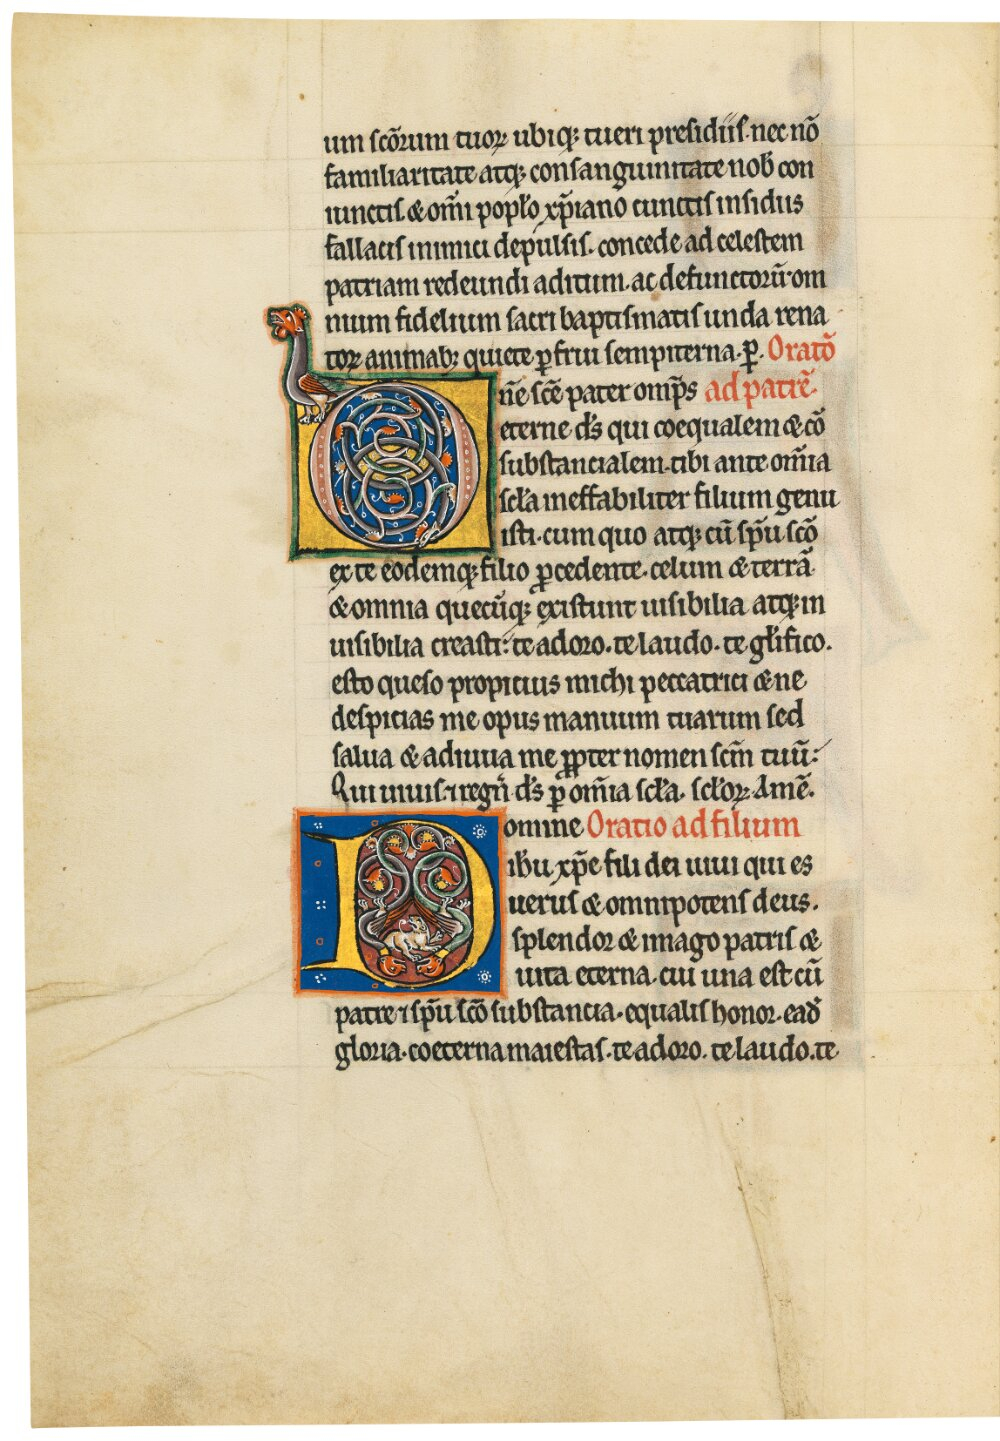 um scõrum tuoꝝ ubiqꝫ tueri presidiis. nec nõ
familiaritate atqꝫ consanguinitate nob̃ con
iunctis. & om̃i popl̃o xp̃iano cunctis insidiis
fallacis inimici depulsis. concede ad celestem
patriam redeundi aditum. ac defunctorũ om
nium fidelium sacri baptismatis unda rena
toꝝ animabꝫ quiete ꝑfrui sempiterna. ꝑ. Oratõ
Dñe scẽ pater omp̃s ad patrẽ.
eterne d̃s qui coequalem & cõ
substancialem. tibi ante om̃ia
scl̃a ineffabiliter filium genu
isti. cum quo atqꝫ cũ sp̃u scõ
ex te eodemqꝫ filio ꝓcedente. celum & terrã
& omnia quecũqꝫ existunt uisibilia atqꝫ in
uisibilia creasti: te adoro. te laudo. te gl̃ifico.
esto queso propicius michi peccatrici & ne
despicias me opus manuum tuarum sed
salua & adiuua me ꝓpter nomen scm̃ tuũ:
Qui uiuis. ⁊ regñ d̃s ꝑ om̃ia scl̃a. scl̃oꝝ. Amẽ.
Domine Oratio ad filium
ih̃u xp̃e fili dei uiui qui es
uerus & omnipotens deus.
splendor & imago patris &
uita eterna. cui una est cũ
patre ⁊ sp̃u scõ substancia. equalis honor. ead̃
gloria. coeterna maiestas. te adoro. te laudo. te